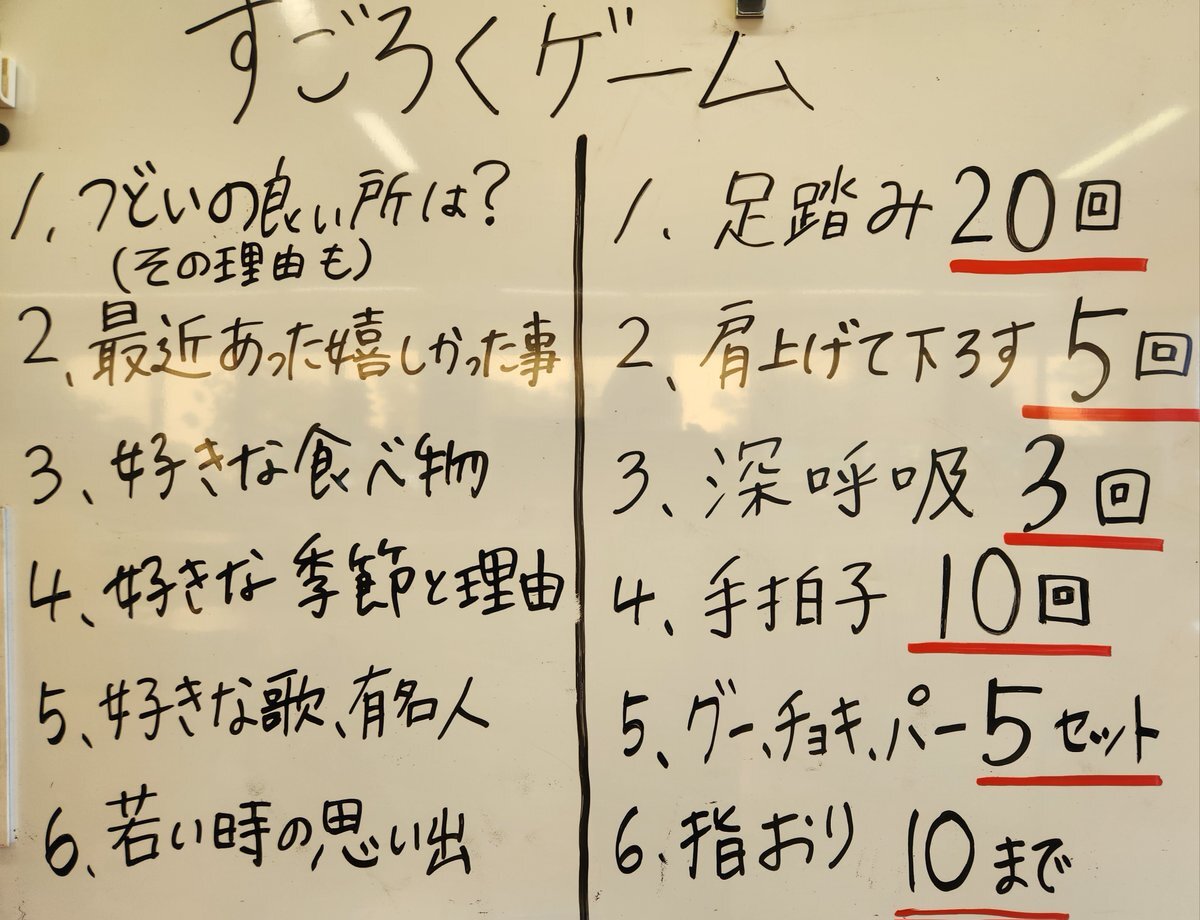 すごろくゲーム
1、つどいの良い所は?
(その理由も)
2、最近あった嬉しかった事
3、好きな食べ物
4、好きな季節と理由
5、好きな歌、有名人
6、若い時の思い出
1、足踏み20回
2、肩上げて下ろす5回
3、深呼吸3回
4、手拍子10回
5、グー、チョキ、パー5セット
6、指おり10まで